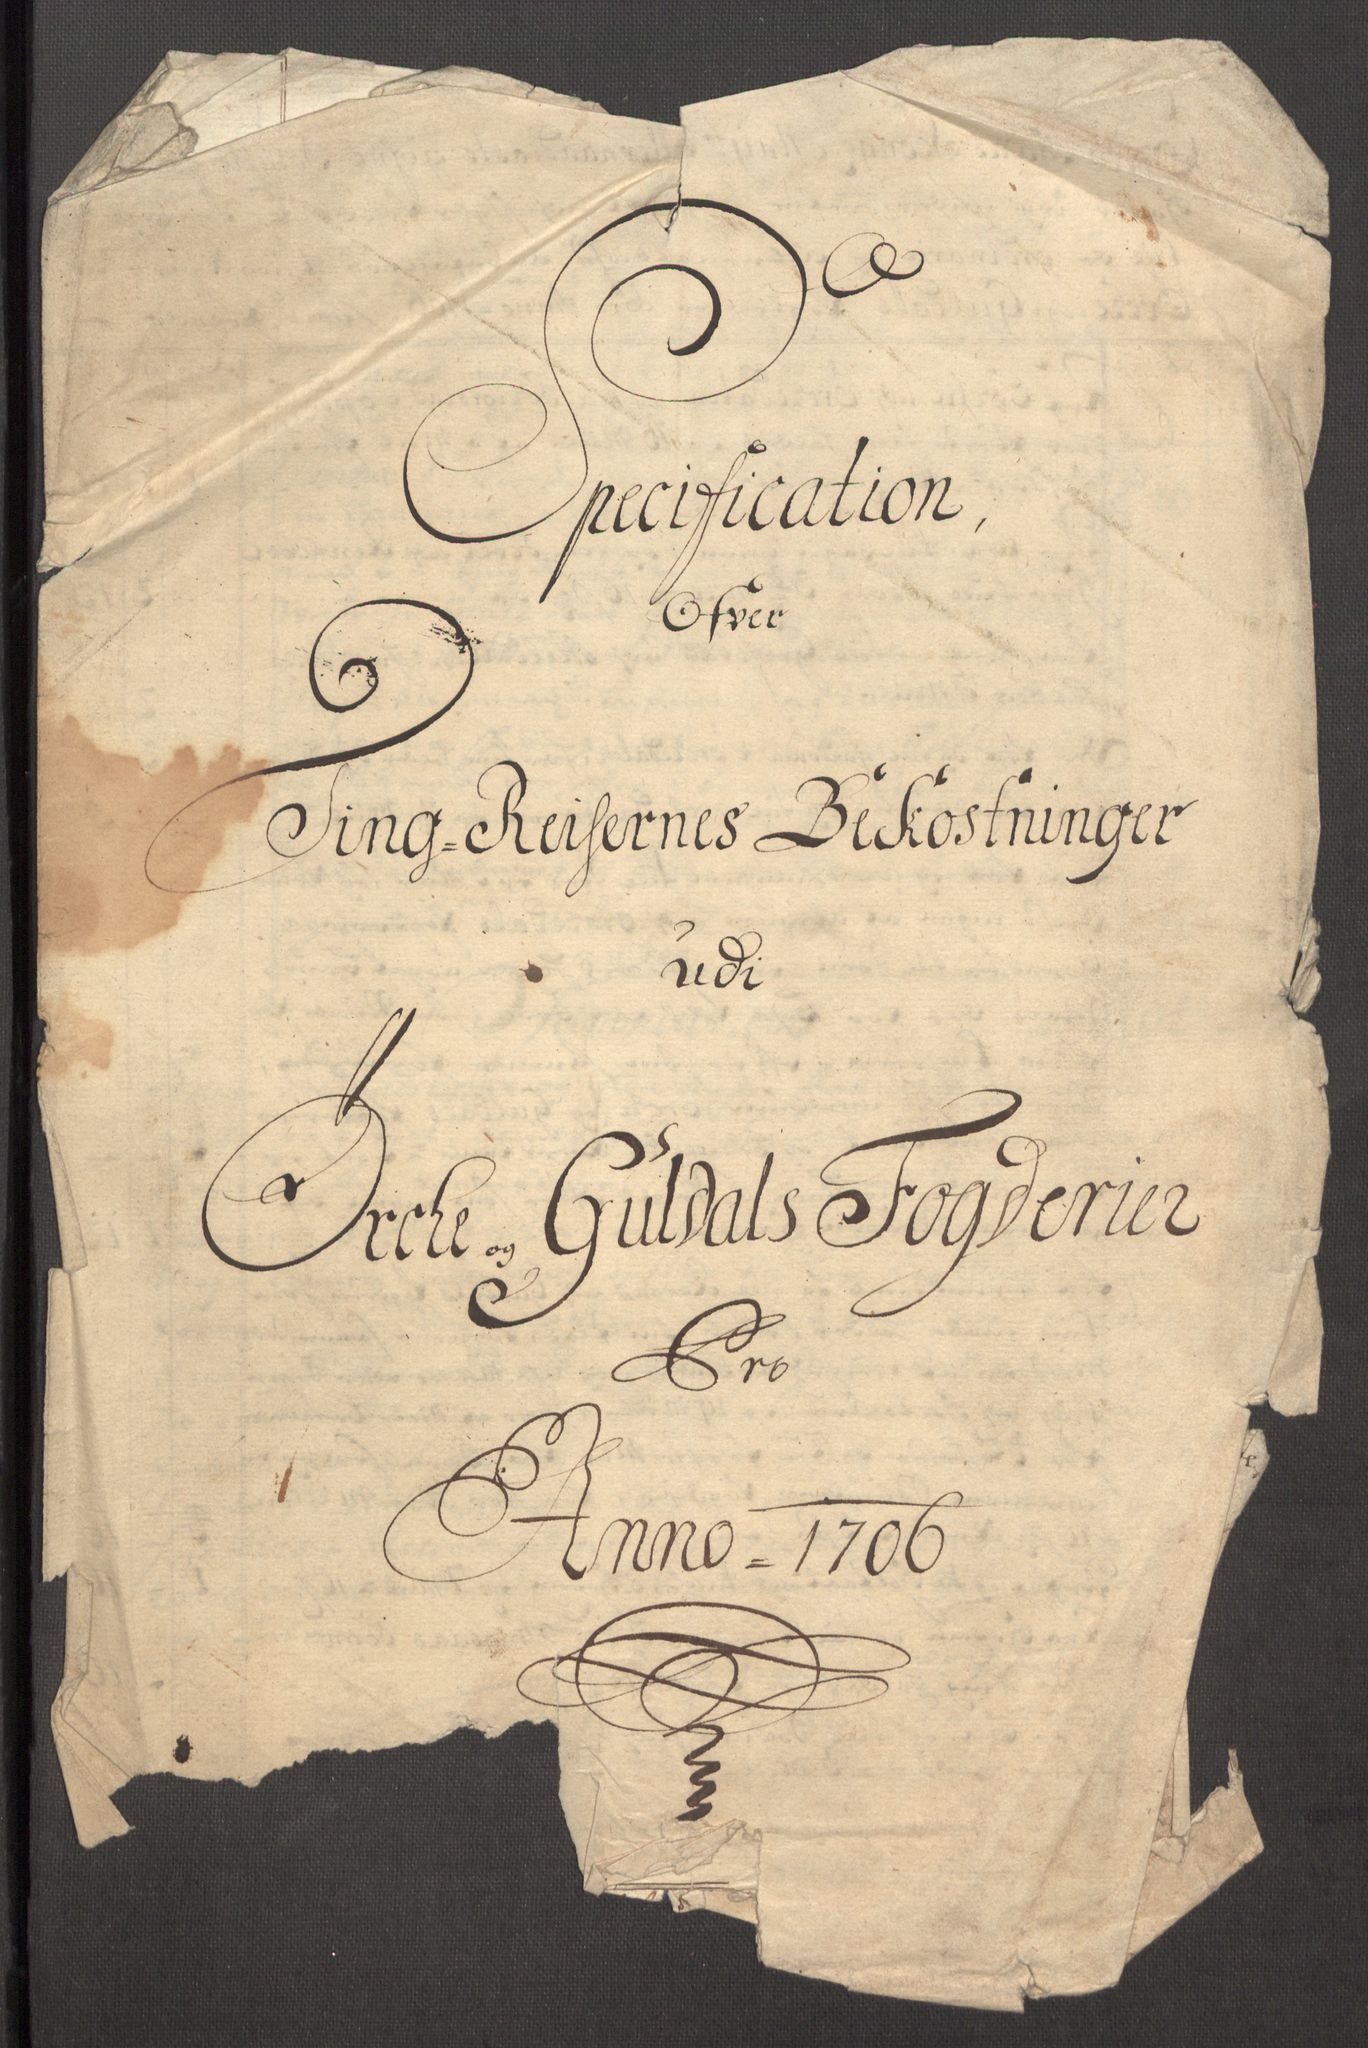 Specification,
Ofver
Ting=Reisernes Bekostninger
udi
Orche og Guldals Fogderier
Pro
Anno=1706